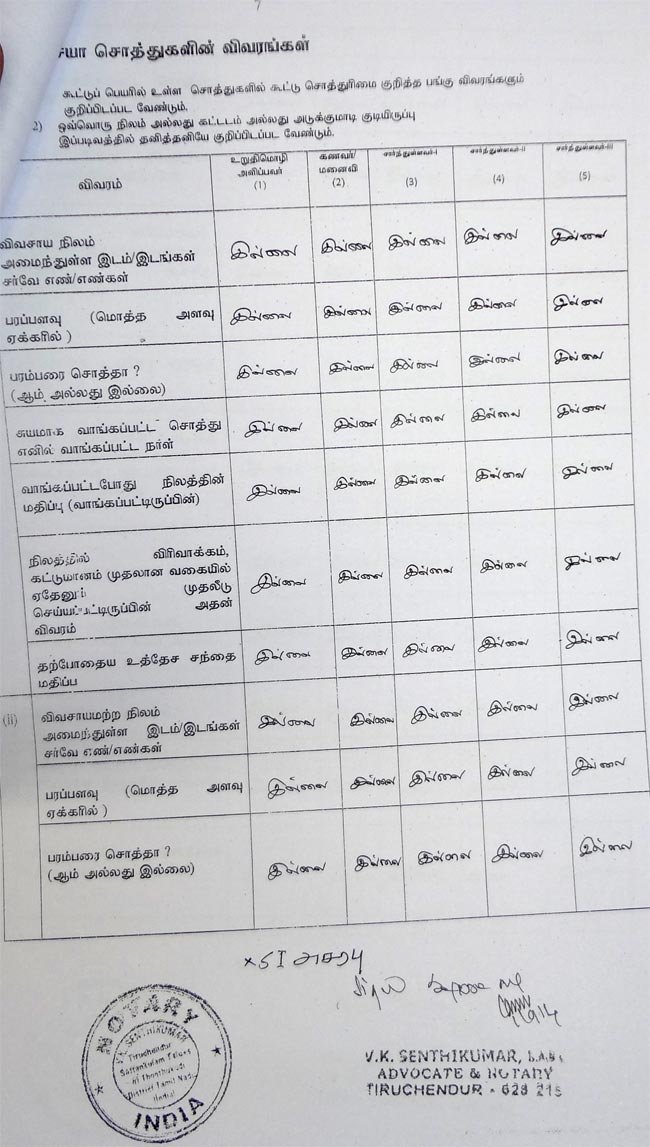 7
சொத்துகளின் விவரங்கள்
கூட்டுப் பெயரில் உள்ள சொத்துகளில் கூட்டு சொத்துரிமை குறித்த பங்கு விவரங்களும்
குறிப்பிடப்பட வேண்டும்.
2) ஒவ்வொரு நிலம் அல்லது கட்டடம் அல்லது அடுக்குமாடி குடியிருப்பு
இப்படிவத்தில் தனித்தனியே குறிப்பிடப்பட வேண்டும்.
விவரம்
உறுதிமொழி
அளிப்பவர்
(1)
கணவர்/
மனைவி
(2)
சார்ந்துள்ளவர்-I
(3)
சார்ந்துள்ளவர்-II
(4)
சார்ந்துள்ளவர்-III
(5)
விவசாய நிலம்
அமைந்துள்ள இடம்/இடங்கள்
சர்வே எண்/எண்கள்
இல்லை இல்லை இல்லை இல்லை இல்லை
பரப்பளவு (மொத்த அளவு
ஏக்கரில் )
இல்லை இல்லை இல்லை இல்லை இல்லை
பரம்பரை சொத்தா ?
(ஆம் அல்லது இல்லை)
இல்லை இல்லை இல்லை இல்லை இல்லை
சுயமாக வாங்கப்பட்ட சொத்து
எனில் வாங்கப்பட்ட நாள்
இல்லை இல்லை இல்லை இல்லை இல்லை
வாங்கப்பட்டபோது நிலத்தின்
மதிப்பு (வாங்கப்பட்டிருப்பின்)
இல்லை இல்லை இல்லை இல்லை இல்லை
நிலத்தில் விரிவாக்கம்,
கட்டுமானம் முதலான வகையில்
ஏதேனும் முதலீடு
செய்யப்பட்டிருப்பின் அதன்
விவரம்
இல்லை இல்லை இல்லை இல்லை இல்லை
தற்போதைய உத்தேச சந்தை
மதிப்ப
இல்லை இல்லை இல்லை இல்லை இல்லை
(ii) விவசாயமற்ற நிலம்
அமைந்துள்ள இடம்/இடங்கள்
சர்வே எண்/எண்கள்
இல்லை இல்லை இல்லை இல்லை இல்லை
பரப்பளவு (மொத்த அளவு
ஏக்கரில் )
இல்லை இல்லை இல்லை இல்லை இல்லை
பரம்பரை சொத்தா ?
(ஆம் அல்லது இல்லை)
இல்லை இல்லை இல்லை இல்லை இல்லை
NOTARY
V.K. SENTHIKUMAR
Tiruchendur
Sattankulam Taluks
District Tamil Nadu
(India)
INDIA
V.K. SENTHIKUMAR, B.A.B.L
ADVOCATE & NOTARY
TIRUCHENDUR - 628 215